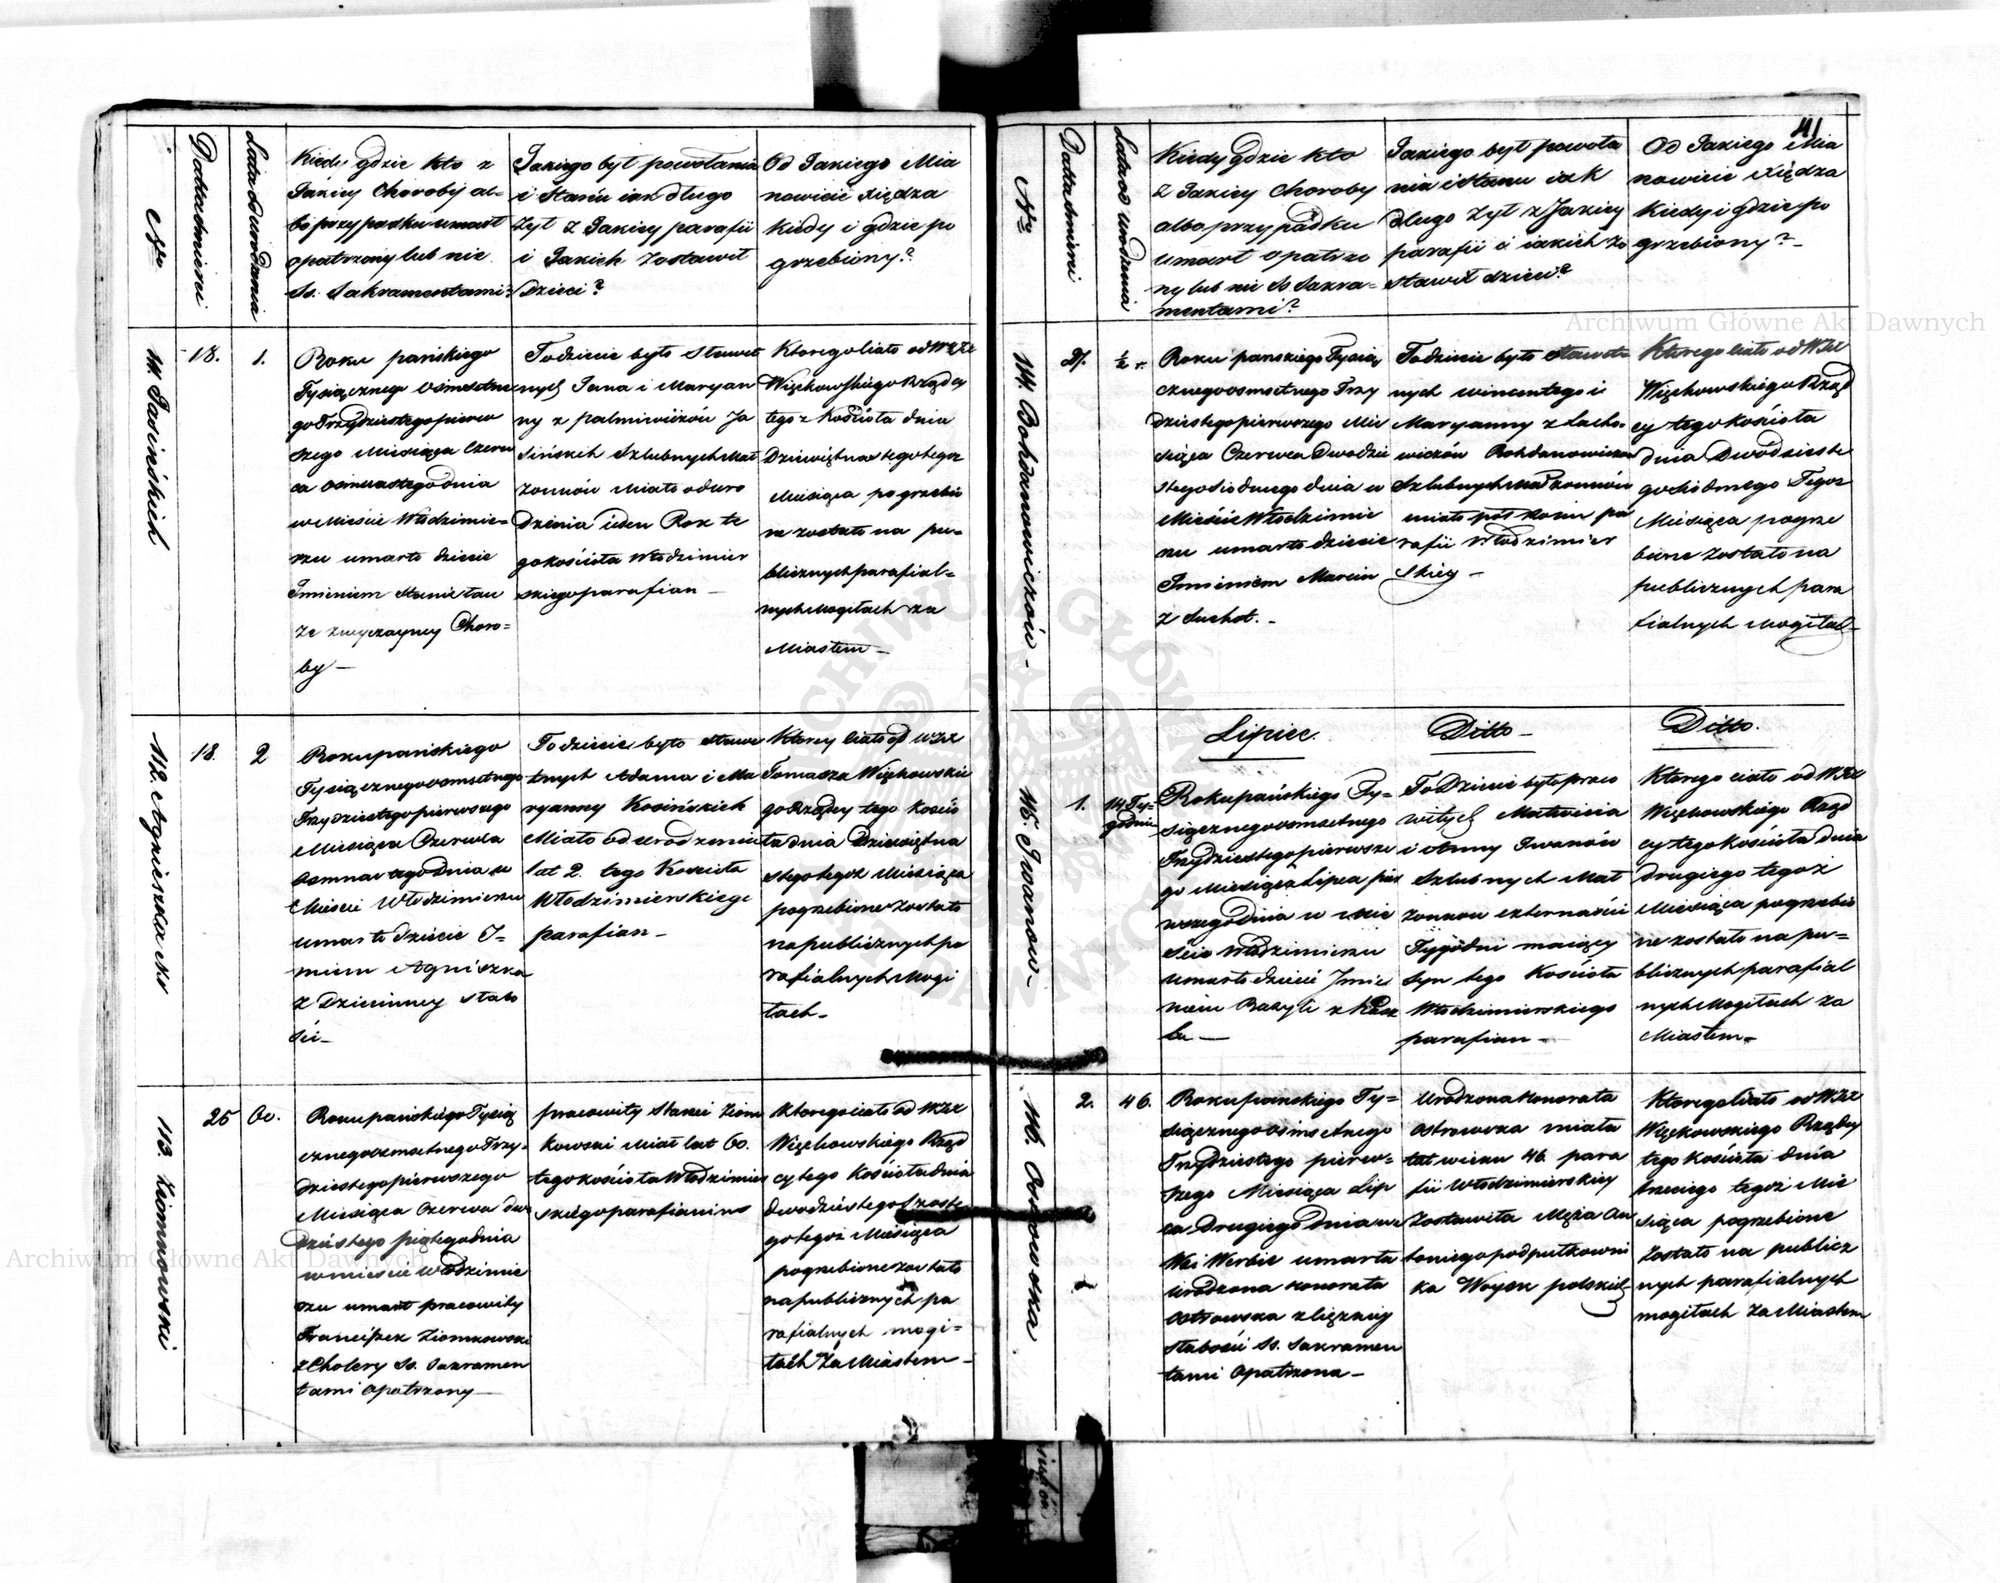 Nro
Datta śmierci
Lata od urodzenia
Kiedy gdzie kto z
Jakiey Choroby al-
bo przypadku umarł
opatrzony lub nie
Ss. Sakramentami?
Jakiego był powołania
i Stanu iak długo
żył z Jakiey parafii
i Jakich zostawił
Dzieci?
Od Jakiego Mia
nowicie Xiędza
kiedy i gdzie po
grzebiony?
111. Jasińskich
18.
1.
Roku pańskiego
Tysiącznego osmsetne
go Trzydziestego pierw
szego Miesiąca Czerw
ca osmnastego dnia
w Mieście Włodzimie-
rzu umarło dziecie
Imieniem Stanisław
ze zwyczayney Choro-
by —
To dziecie było Sławet
nych Jana i Maryan
ny z Palmiwiczów Ja
sińskich Szlubnych Mał
żonków miało od uro
dzenia ieden Rok te
go kościoła Włodzimier
skiego parafian —
Ktorego ciało od WJX
Więckowskiego Rządcy
tego z Kościoła dnia
Dziewiętnastego tegoz
Miesiąca pogrzebio
ne zostało na pu-
blicznych parafial-
nych Mogiłach za
Miastem —
112. Agnieszka
18.
2
Roku pańskiego
Tysiącznego osmsetnego
Trzydziestego pierwszego
Miesiąca Czerwca
Osmnastego Dnia w
Mieście Włodzimierzu
umarło dziecie I-
mieniem Agnieszka
z Dziecinney słabo
ści —
To dziecie było sławe
tnych Adama i Ma
ryanny Kosińskich
Miało od urodzenia
lat 2. tego Kościoła
Włodzimierskiego
parafian —
Ktorey ciało od WJX
Tomasza Więckowskie
go Rządcy tego kościo
ła dnia Dziewiętna
stego tegoż Miesiąca
pogrzebione zostało
na publicznych pa
rafialnych Mogi
łach —
113 Ziomkowski
25
60.
Roku pańskiego Tysią
cznego osmsetnego Trzy-
dziestego pierwszego
Miesiąca Czerwca dwu
dziestego piątego dnia
w mieście Włodzimie
rzu umarł pracowity
Franciszek Ziomkowski
z Cholery Ss. Sakramen
tami opatrzony —
pracowity Ziom
kowski Miał lat 60.
tego kościoła Włodzimier
skiego parafianin
Ktorego ciało od WJX
Więckowskiego Rząd
cy tego Kościoła dnia
dwudziestego szoste
go tegoż Miesiąca
pogrzebione zostało
na publicznych pa
rafialnych mogi-
łach za Miastem —
41
Nro
Datta śmierci
Lata od urodzenia
Kiedy gdzie kto
z Jakiey Choroby
albo przypadku
umarł opatrzo
ny lub nie Ss Sakra-
mentami?
Jakiego był powoła
nia i Stanu iak
długo żył z Jakiey
parafii i iakich zo
stawił dzieci?
Od Jakiego Mia
nowicie Xiędza
kiedy i gdzie po
grzebiony? —
114. Bohdanowiczów —
27.
½ r.
Roku panskiego Tysią
cznego osmsetnego Trzy
dziestego pierwszego Mie
siąca Czerwca Dwudzie
stego siodmego dnia w
Mieście Włodzimie
rzu umarło dziecie
Imieniem Marcin
z Suchot. —
To dziecie było Sławetn
nych wincentego i
Maryanny z Lacho-
wiczów Bohdanowiczów
Szlubnych Małżonków
miało pół roku pa
rafii Włodzimier
skiey —
Ktorego ciało od WJX
Więckowskiego Rząd
cy tego kościoła
dnia Dwódzieste
go siodmego Tegoż
Miesiąca pogrze
bione zostało na
publicznych para
fialnych Mogiłach
Lipiec.
Ditto —
Ditto.
115 Iwanow —
1.
14 Ty-
godnie
Roku pańskiego Ty-
siącznego osmsetnego
Trzydziestego pierwsze
go Miesiąca Lipca pier
wszego dnia w Mie
ście Włodzimierzu
umarło dziecie Imie
niem Bazyli z Kasz
lu —
To Dziecie było praco
witych Matwieia
i Anny Iwanów
Szlubnych Mał
żonkow czternaście
Tygodni maiący
syn tego Kościoła
Włodzimierskiego
parafian —
Ktorego ciało od WJX
Więckowskiego Rząd
cy tego kościoła dnia
drugiego tegoż
Miesiąca pogrzebio
ne zostało na pu-
blicznych parafial
nych Mogiłach za
Miastem —
116. Ostrowska
2.
46.
Roku pańskiego Ty-
siącznego osmsetnego
Trzydziestego pierw-
szego Miesiąca Lip
ca Drugiego Dnia we
Wsi Werbie umarła
urodzona Honorata
Ostrowska z ciężkiey
słabości Ss. Sakramen
tami opatrzona —
Urodzona Honorata
Ostrowska miała
lat wieku 46 para
fii Włodzimierskiey
Zostawiła Męża An
toniego podpułkowni
ka Woysk polskich
Ktorego Ciało od WJX
Więckowskiego Rządcy
tego Kościoła dnia
trzeciego tegoż Mie
siąca pogrzebione
zostało na publicz
nych parafialnych
mogiłach za Miastem
Archiwum Główne Akt Dawnych
Archiwum Główne Akt Dawnych